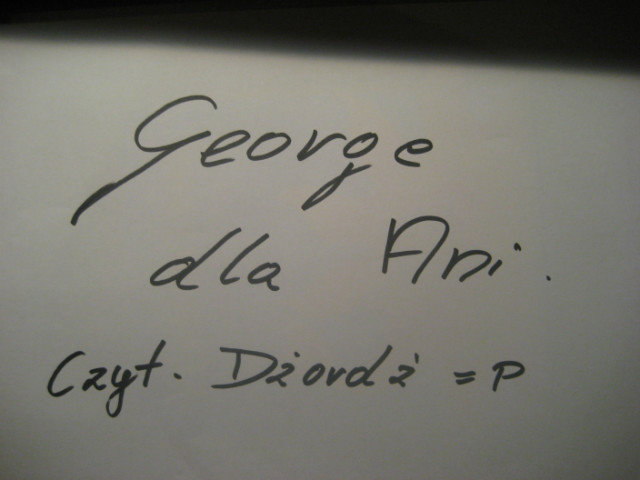 George
dla Ani.
Czyt. Dżordż =P